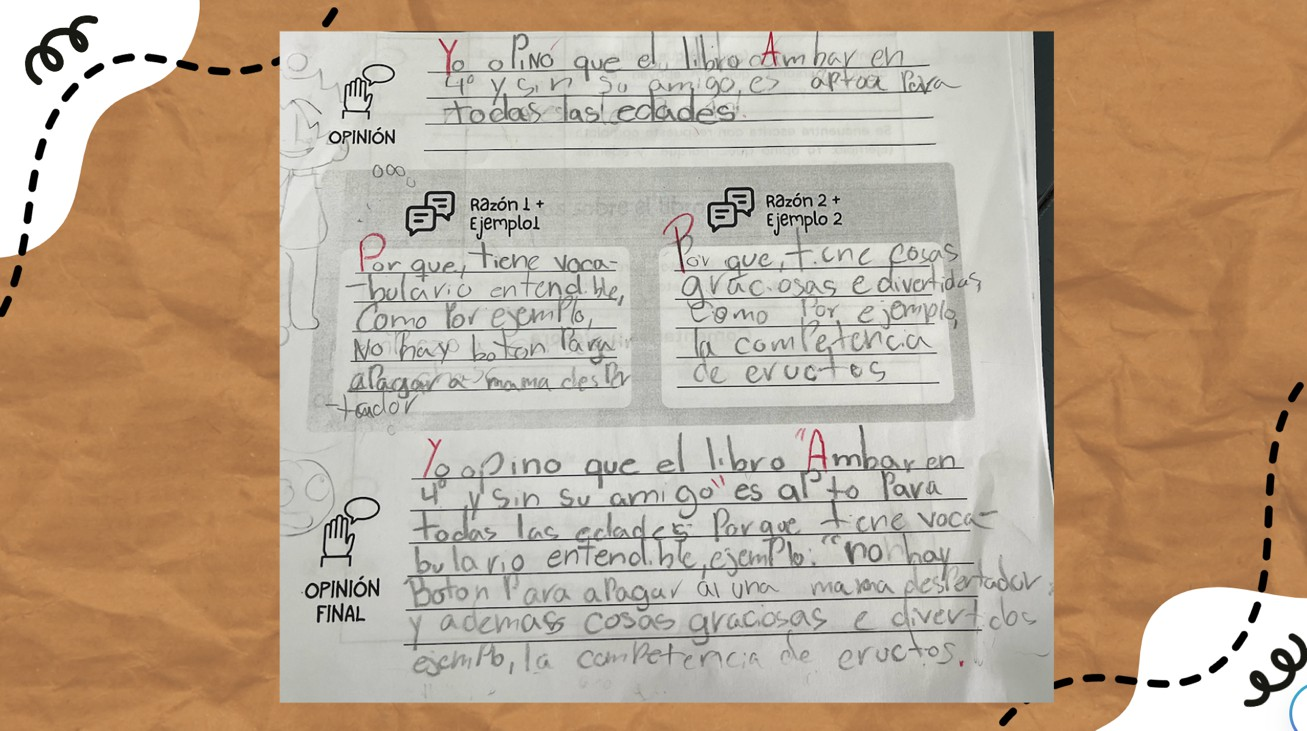 Yo oPiNó que el libro Ambar en
4° y sin su amigo, es aptoa Para
todas las edades.
OPINIÓN
Razón 1 +
Ejemplo1
Por que, tiene voca-
-bulario entendible,
Como Por ejemPlo,
No hay boton Para
aPagar a mama desPer
-tador
Razón 2 +
Ejemplo 2
Por que, tiene cosas
graciosas e divertidas,
Como Por ejemplo,
la comPetencia
de eructos
Yo oPino que el libro "Ambar en
4° y sin su amigo" es aPto Para
todas las edades Porque tiene voca-
bulario entendible, ejemPlo: "no hay
Boton Para aPagar a una mama desPertador
y ademas cosas graciosas e divertidos
ejemPlo, la comPetencia de eructos.
OPINIÓN
FINAL